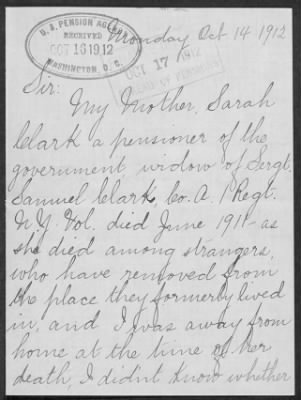 U.S. PENSION AGENCY
RECEIVED
OCT 16 1912
WASHINGTON, D.C.
Monday Oct 14 1912
OCT 17 1912
Sir:
My Mother, Sarah
Clark a pensioner of the
government, widow of Sergt.
Samuel Clark, Co. A. 1 Regt.
N.Y. Vol. died June 1911 - as
she died among strangers,
who have removed from
the place they formerly lived
in, and I was away from
home at the time of her
death, I didn't know whether